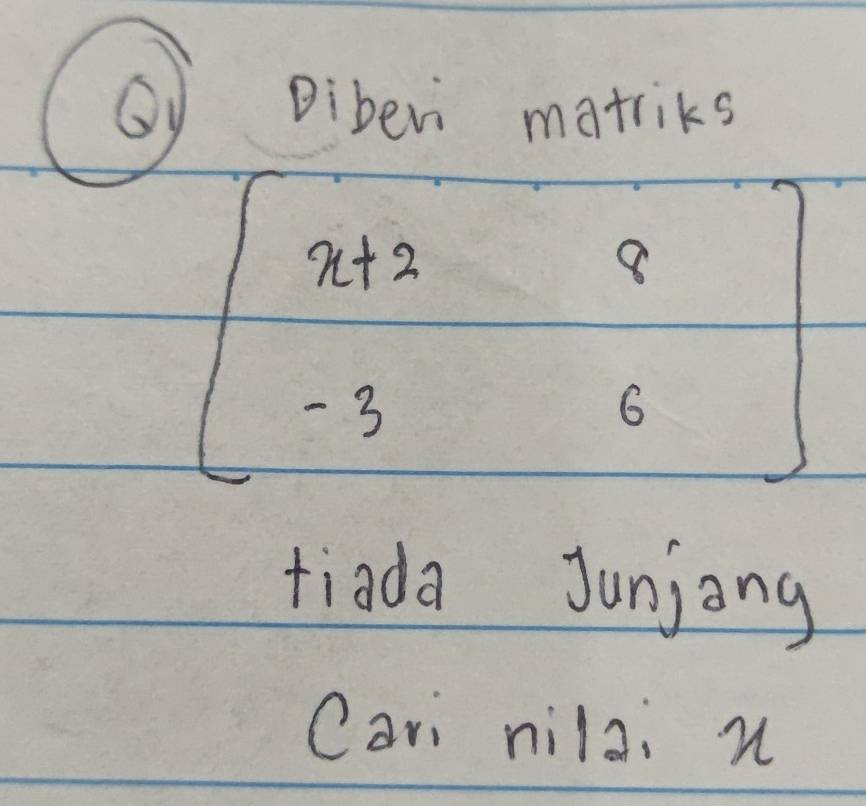 Q1 Diberi matriks
x+2 8
-3 6
tiada Junjang
Cari nilai x